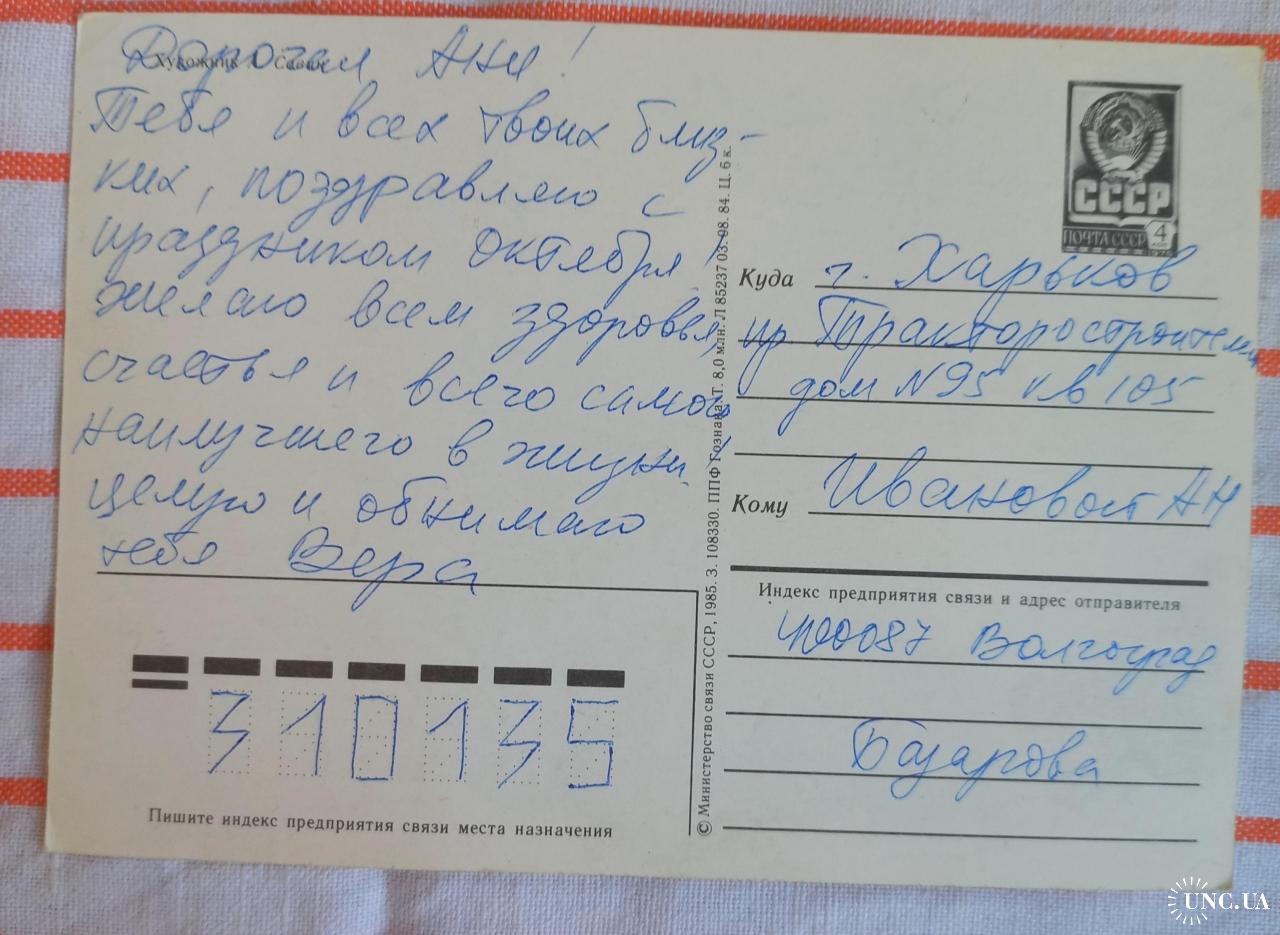 Художник Савин
Дорогая АНИ!
Тебя и всех твоих близ-
ких, поздравляю с
праздником Октября!
Желаю всем здоровья,
счастья и всего самого
наилучшего в жизни.
Целую и обнимаю
тебя Вера
310135
Пишите индекс предприятия связи места назначения
© Министерство связи СССР, 1985. З. 108330. ППФ Гознака. Т. 8,0 млн. Л 85237 03. 08. 84. Ц. 6 к.
СССР
ПОЧТА СССР 4
Куда г. Харьков
пр. Тракторостроителей
дом N95 кв 105
Кому Ивановой АН
Индекс предприятия связи и адрес отправителя
400087 Волгоград
Базарова
UNC.UA